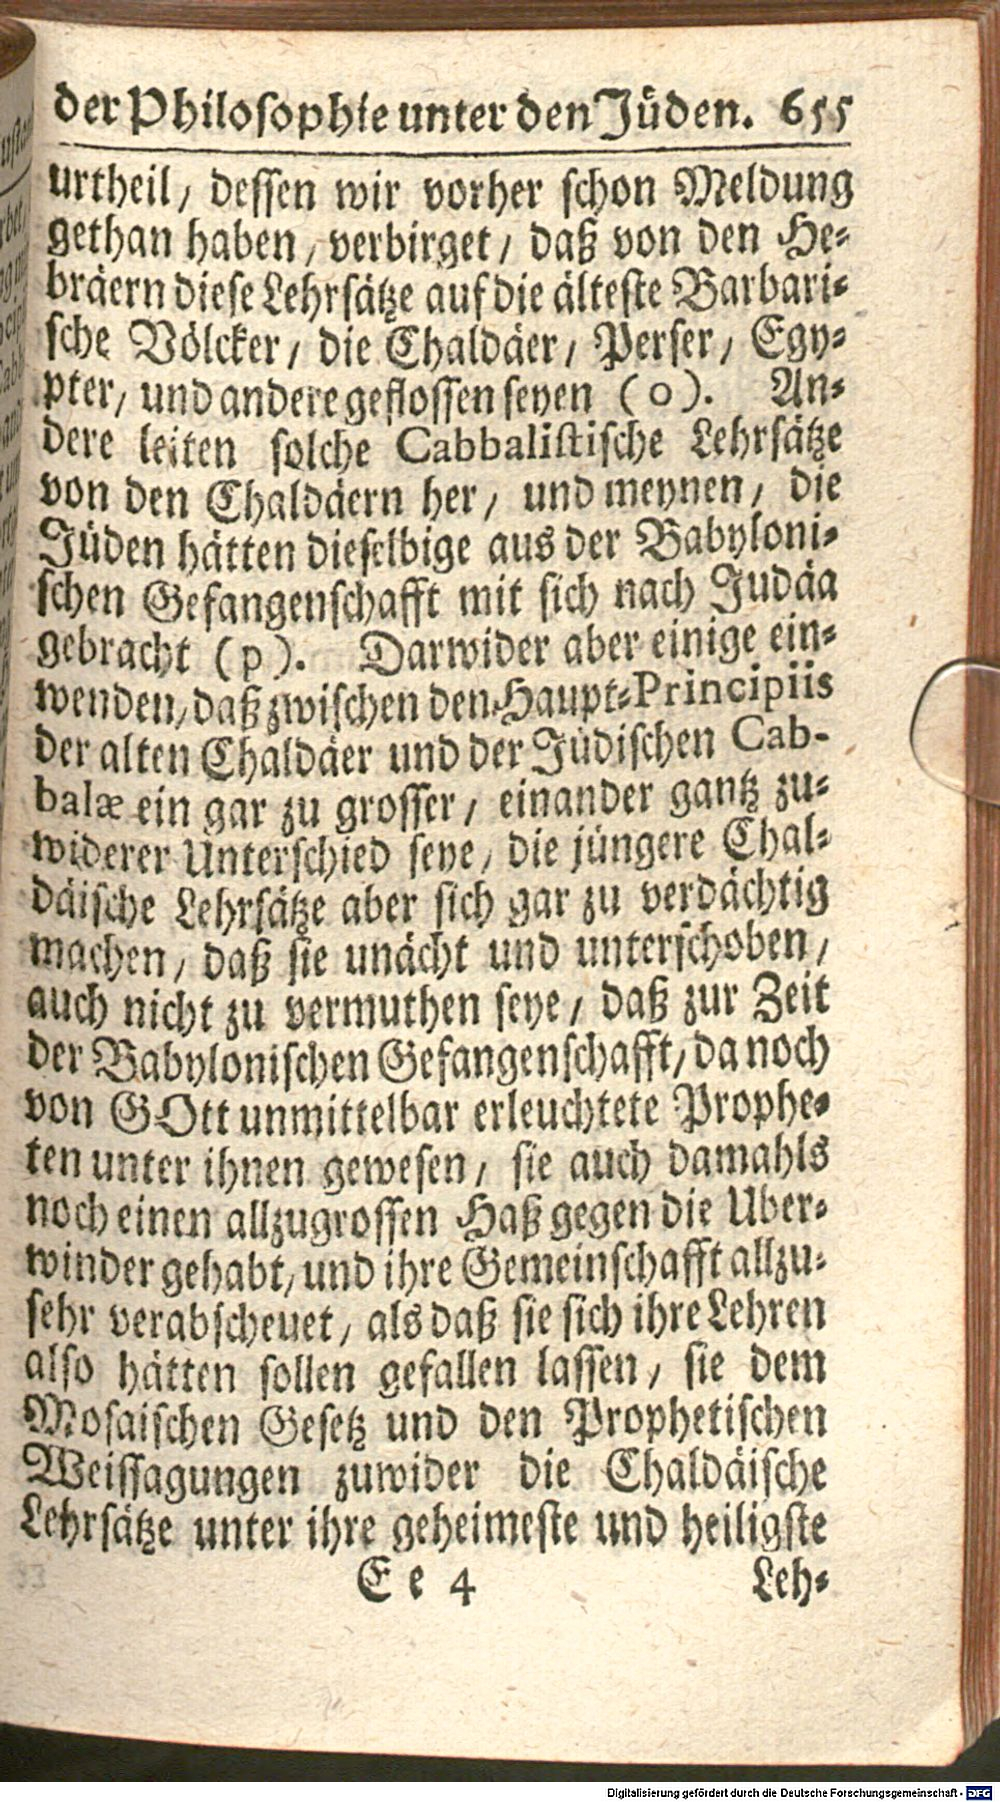 der Philosophie unter den Jüden. 655
urtheil, dessen wir vorher schon Meldung
gethan haben, verbirget, daß von den He-
bräern diese Lehrsätze auf die älteste Barbari-
sche Völcker, die Chaldäer, Perser, Egy-
pter, und andere geflossen seyen (o). An-
dere leiten solche Cabbalistische Lehrsätze
von den Chaldäern her, und meynen, die
Jüden hätten dieselbige aus der Babyloni-
schen Gefangenschafft mit sich nach Judäa
gebracht (p). Darwider aber einige ein-
wenden, daß zwischen den Haupt-Principiis
der alten Chaldäer und der Jüdischen Cab-
balæ ein gar zu grosser, einander gantz zu-
widerer Unterschied seye, die jüngere Chal-
däische Lehrsätze aber sich gar zu verdächtig
machen, daß sie unächt und unterschoben,
auch nicht zu vermuthen seye, daß zur Zeit
der Babylonischen Gefangenschafft, da noch
von GOtt unmittelbar erleuchtete Prophe-
ten unter ihnen gewesen, sie auch damahls
noch einen allzugrossen Haß gegen die Uber-
winder gehabt, und ihre Gemeinschafft allzu-
sehr verabscheuet, als daß sie sich ihre Lehren
also hätten sollen gefallen lassen, sie dem
Mosaischen Gesetz und den Prophetischen
Weissagungen zuwider die Chaldäische
Lehrsätze unter ihre geheimeste und heiligste
Ee 4 Leh-
Digitalisierung gefördert durch die Deutsche Forschungsgemeinschaft - DFG